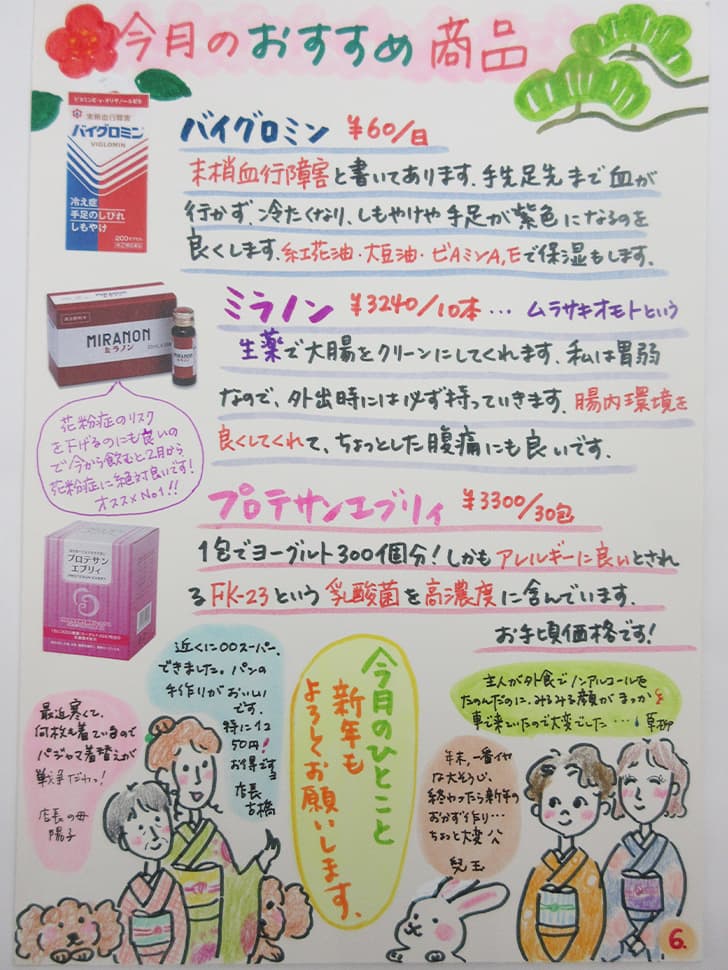 今月のおすすめ商品
ビタミンE・γ-オリザノール配合
末梢血行障害
バイグロミン
VIGLOMIN
冷え症
手足のしびれ
しもやけ
200カプセル
バイグロミン ¥60/日
末梢血行障害と書いてあります。手先足先まで血が
行かず、冷たくなり、しもやけや手足が紫色になるのを
良くします。紅花油・大豆油・ビタミンA,Eで保湿もします。
MIRANON
ミラノン
ミラノン ¥3240/10本… ムラサキオモトという
生薬で大腸をクリーンにしてくれます。私は胃弱
なので、外出時には必ず持っていきます。腸内環境を
良くしてくれて、ちょっとした腹痛にも良いです。
花粉症のリスク
を下げるのにも良いの
で今から飲むと2月から
花粉症に絶対良いです!
オススメNo1!!
プロテサン
エブリィ
プロテサンエブリィ ¥3300/30包
1包でヨーグルト300個分!しかもアレルギーに良いとされ
るFK-23という乳酸菌を高濃度に含んでいます。
お手頃価格です!
最近寒くて、
何枚も着ているので
パジャマ着替えが
戦争だわっ!
店長の母
陽子
近くに〇〇スーパー、
できました。パンの
手作りがおいしい
です。
特に1コ
50円!
お得です
店長
古橋
今月のひとこと
新年も
よろしくお願いします。
主人が外食でノンアルコールを
たのんだのに、みるみる顔がまっか
車で来ていたので大変でした… 草柳
年末、一番イヤ
な大そうじ、
終わったら新年の
おかず作り…
ちょっと大変
児玉
6.